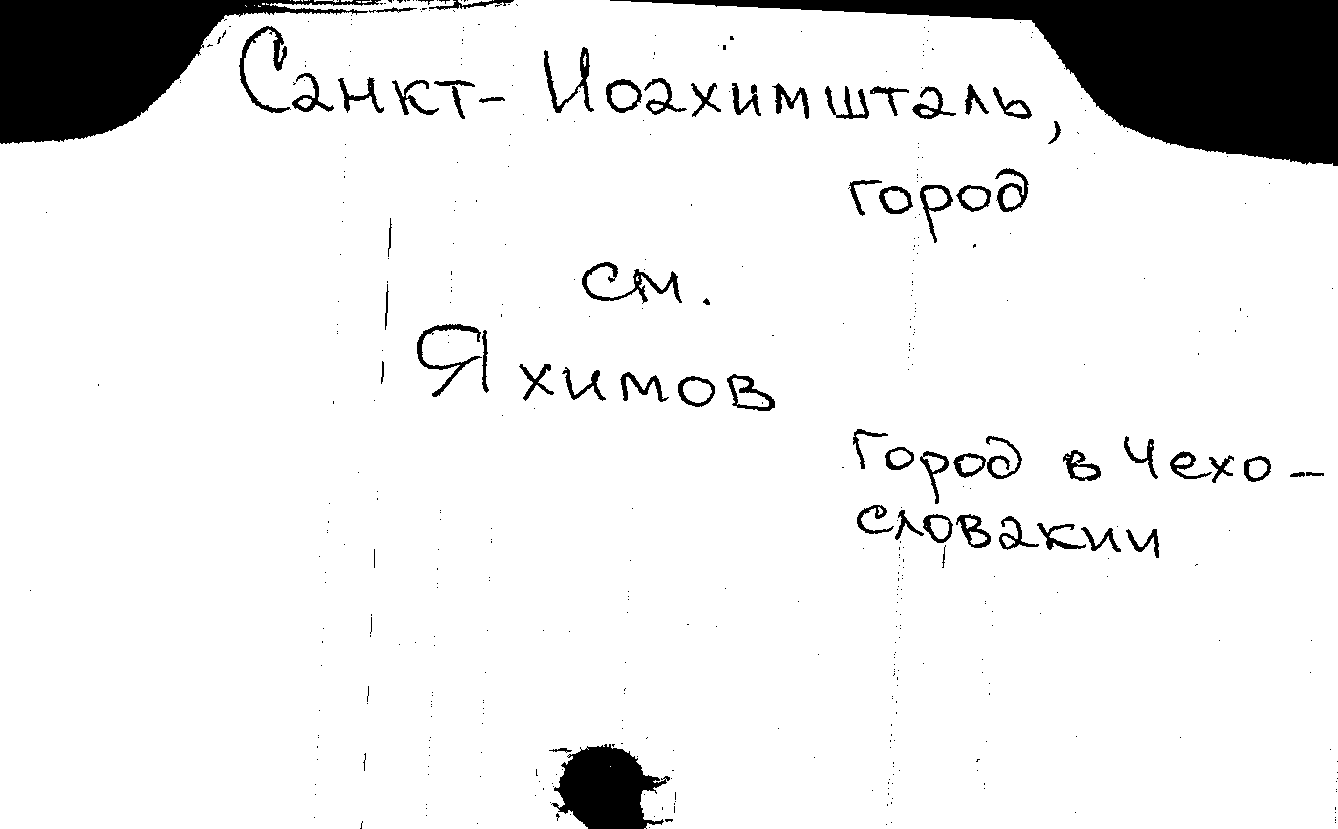 Санкт- Иоахимшталь,
город
см.
Яхимов
город в Чехо-
словакии